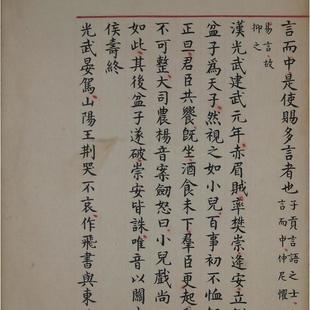 言而中是使賜多言者也子貢言語之士
言而中仲尼懼
易言故
抑之
漢光武建武元年赤眉賊率樊崇逢安立
盆子為天子然視之如小兒百事初不恤
正旦君臣共饗既坐酒食未下羣臣更起
不可整大司農楊音案劔怒曰小兒戲尚
如此其後盆子遂破崇安皆誅唯音以關
侯壽終
光武晏駕山陽王荆哭不哀作飛書與東